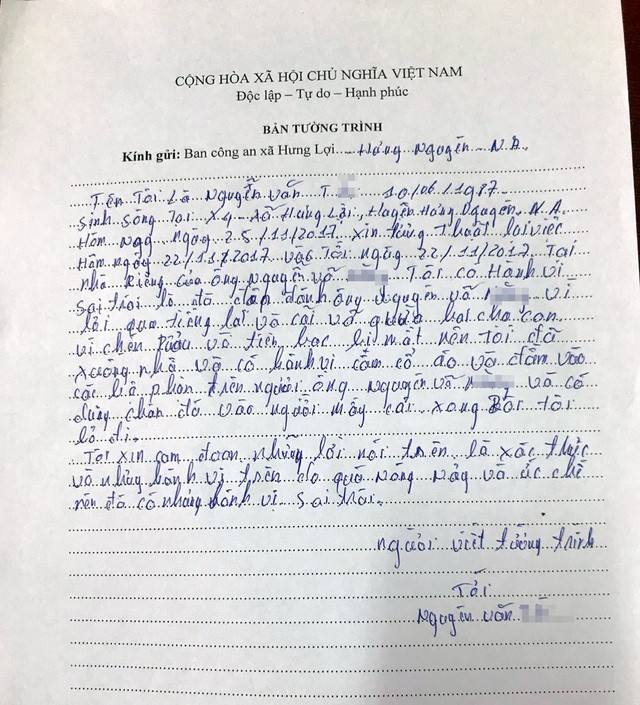 CỘNG HÒA XÃ HỘI CHỦ NGHĨA VIỆT NAM
Độc lập – Tự do – Hạnh phúc
BẢN TƯỜNG TRÌNH
Kính gửi: Ban công an xã Hưng Lợi Hưng Nguyên N.A.
Tên Tôi Là Nguyễn văn T 10/06/1987
Sinh sống Tại xã Hưng Lợi, Huyện Hưng Nguyên, N.A.
Hôm nay ngày 25/11/2017 xin tường Thuật lại việc
Hôm ngày 22/11/2017 vào Tối ngày 22/11/2017 Tại
nhà riêng của ông nguyên võ Tôi có Hành vi
Sai trái là đã đánh ông nguyên võ vì
lời qua tiếng lại và cãi vã giữa hai cha con
vì chén rượu và tiền bạc bị mất nên tôi đã
xuống nhà và có hành vi cầm cổ áo và đấm vào
các bộ phận trên người ông nguyên võ và có
dùng chân đá vào người mấy cái xong Rồi tôi
bỏ đi.
Tôi xin cam đoan những lời nói trên là xác thực
và những hành vi trên do quá nóng nảy và ức chế
nên đã có những hành vi sai trái.
người viết tường trình
Tôi
Nguyên văn